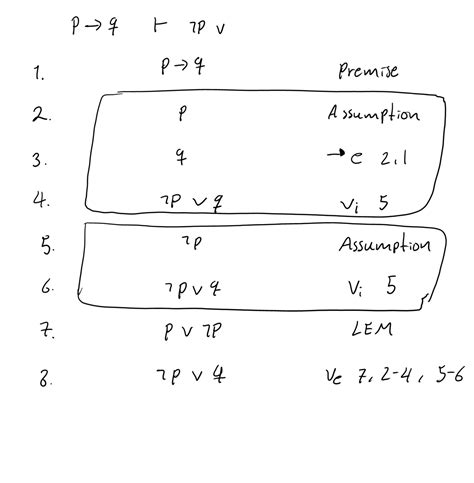 p → q ⊢ ¬p ∨
1. p → q Premise
2. p Assumption
3. q →e 2,1
4. ¬p ∨ q ∨i 5
5. ¬p Assumption
6. ¬p ∨ q ∨i 5
7. p ∨ ¬p LEM
8. ¬p ∨ q ∨e 7, 2-4, 5-6